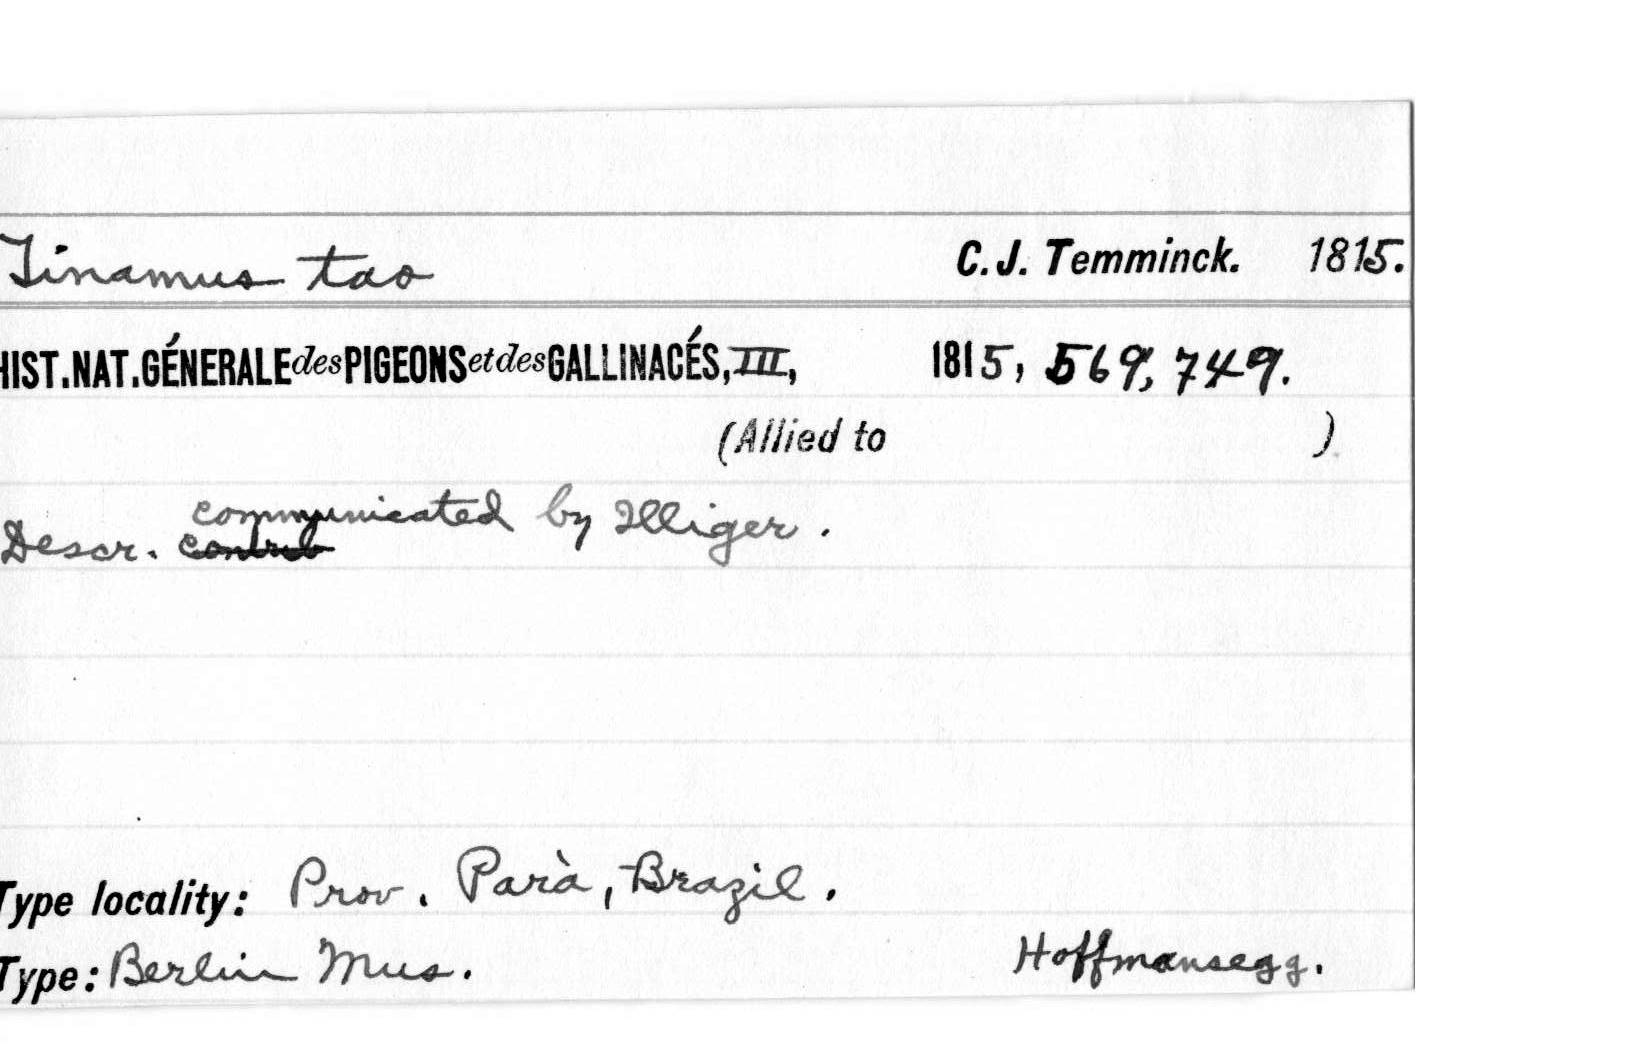 Tinamus tao C. J. Temminck. 1815.
HIST. NAT. GÉNERALE des PIGEONS et des GALLINACÉS, III, 1815, 569, 749.
(Allied to )
communicated by Illiger.
Descr. contrib
Type locality: Prov. Parà, Brazil.
Type: Berlin Mus. Hoffmansegg.